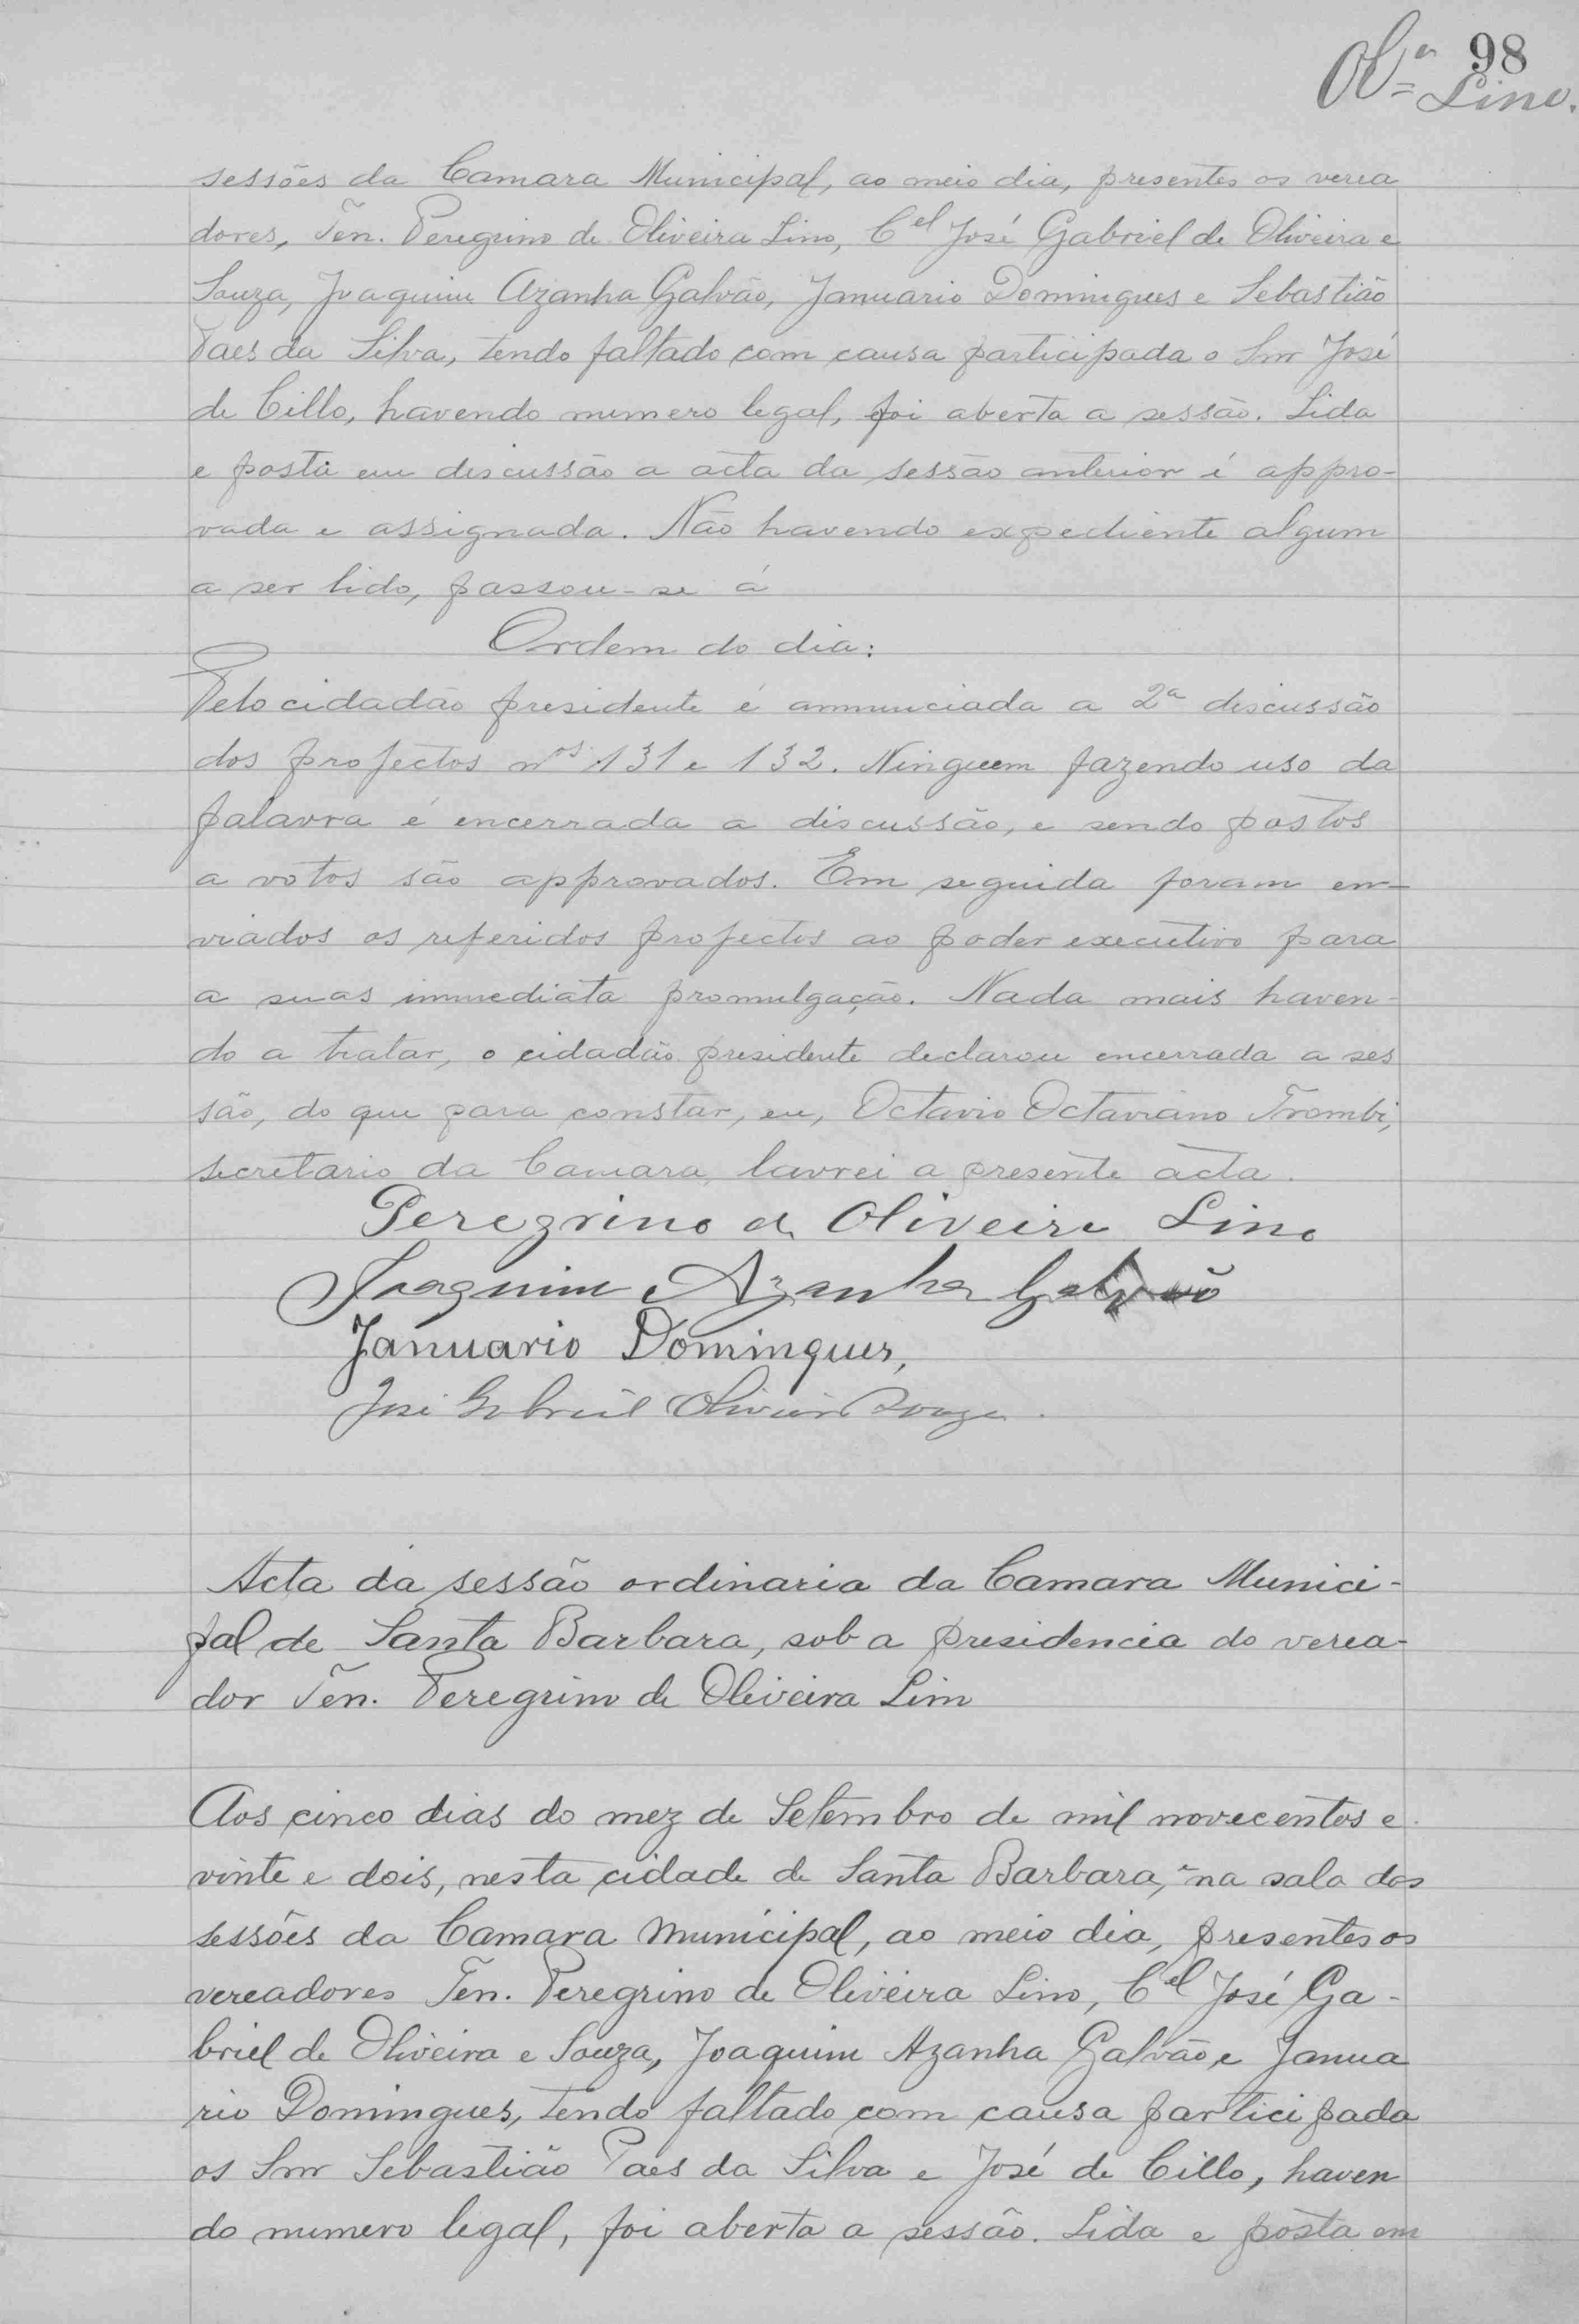 98
Olra Lino.
sessões da Camara Municipal, ao meio dia, presentes os verea
dores, Ten. Peregrino de Oliveira Lino, Cel José Gabriel de Oliveira e
Souza, Joaquim Azanha Galvão, Januario Domingues e Sebastião
Paes da Silva, tendo faltado com causa participada o Snr José
de Cillo, havendo numero legal, foi aberta a sessão. Lida
e posta em discussão a acta da sessão anterior é appro-
vada e assignada. Não havendo expediente algum
a ser lido, passou-se á
Ordem do dia:
Pelo cidadão presidente é annunciada a 2ª discussão
dos projectos nos 131 e 132. Ninguem fazendo uso da
palavra é encerrada a discussão, e sendo postos
a votos são approvados. Em seguida foram en-
viados os referidos projectos ao poder executivo para
a suas immediata promulgação. Nada mais haven-
do a tratar, o cidadão presidente declarou encerrada a ses
são, do que para constar, eu, Octavio Octaviano Trombi,
secretario da Camara, lavrei a presente acta.
Peregrino de Oliveira Lino
Joaquim Azanha Galvão
Januario Domingues,
José Gabriel Oliveira Souza.
Acta da sessão ordinaria da Camara Munici-
pal de Santa Barbara, sob a presidencia do verea-
dor Ten. Peregrino de Oliveira Lino
Aos cinco dias do mez de Setembro de mil novecentos e
vinte e dois, nesta cidade de Santa Barbara, na sala das
sessões da Camara Municipal, ao meio dia, presentes os
vereadores Ten. Peregrino de Oliveira Lino, Cel José Ga-
briel de Oliveira e Souza, Joaquim Azanha Galvão e Janua
rio Domingues, tendo faltado com causa participada
os Snr Sebastião Paes da Silva e José de Cillo, haven
do numero legal, foi aberta a sessão. Lida e posta em